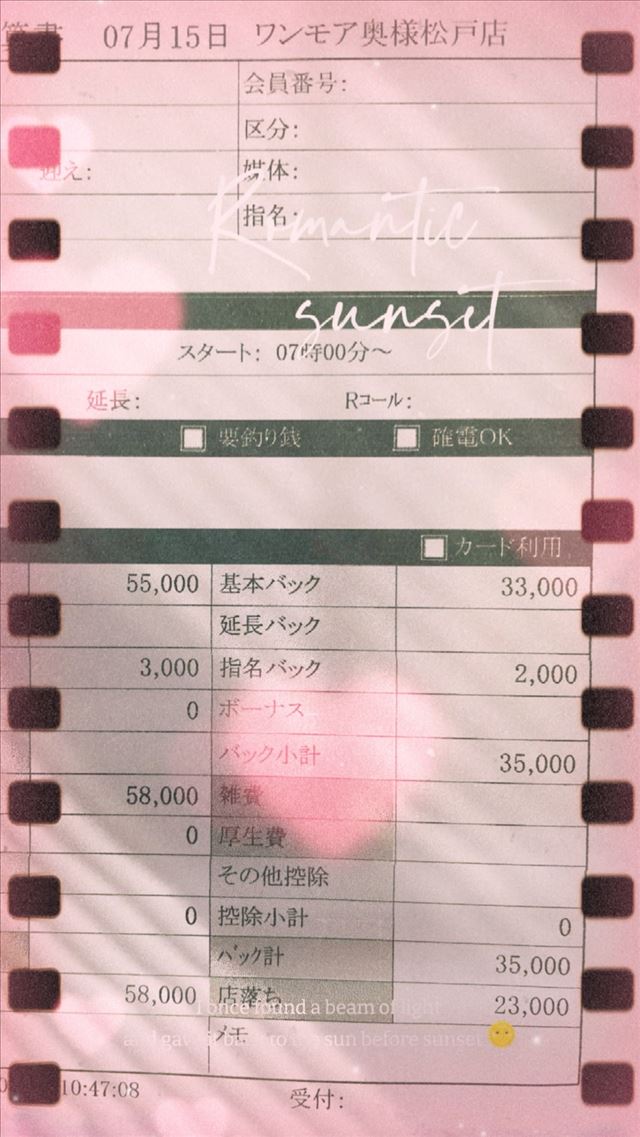 算書 07月15日 ワンモア奥様松戸店
会員番号:
区分:
迎え: 媒体:
指名:
Romantic
sunset
スタート: 07時00分～
延長: Rコール:
要釣り銭 確電OK
カード利用
55,000 基本バック 33,000
延長バック
3,000 指名バック 2,000
0 ボーナス
バック小計 35,000
58,000 雑費
0 厚生費
その他控除
0 控除小計 0
バック計 35,000
58,000 店落ち 23,000
I once found a beam of light
メモ
and gave it back to the sun before sunset 😶
10:47:08 受付: